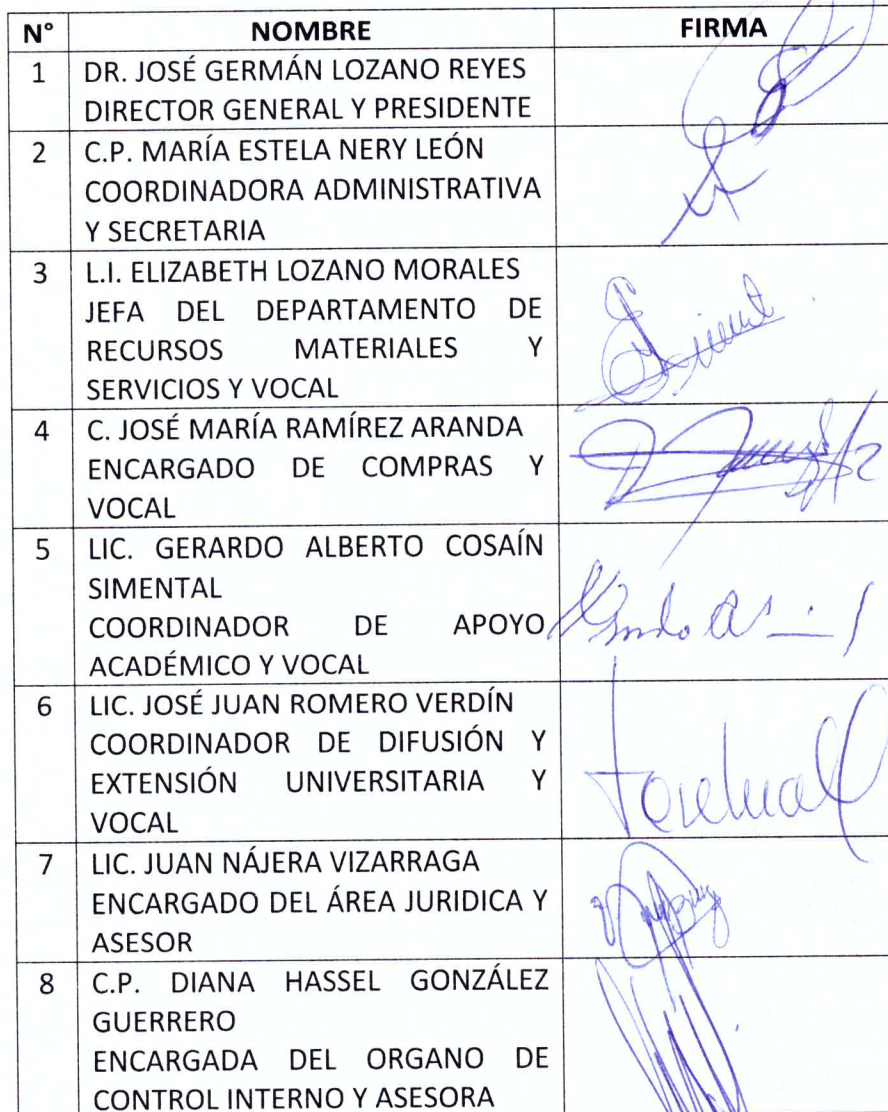 N° NOMBRE FIRMA
1 DR. JOSÉ GERMÁN LOZANO REYES
DIRECTOR GENERAL Y PRESIDENTE
2 C.P. MARÍA ESTELA NERY LEÓN
COORDINADORA ADMINISTRATIVA
Y SECRETARIA
3 L.I. ELIZABETH LOZANO MORALES
JEFA DEL DEPARTAMENTO DE
RECURSOS MATERIALES Y
SERVICIOS Y VOCAL
4 C. JOSÉ MARÍA RAMÍREZ ARANDA
ENCARGADO DE COMPRAS Y
VOCAL
5 LIC. GERARDO ALBERTO COSAÍN
SIMENTAL
COORDINADOR DE APOYO
ACADÉMICO Y VOCAL
6 LIC. JOSÉ JUAN ROMERO VERDÍN
COORDINADOR DE DIFUSIÓN Y
EXTENSIÓN UNIVERSITARIA Y
VOCAL
7 LIC. JUAN NÁJERA VIZARRAGA
ENCARGADO DEL ÁREA JURIDICA Y
ASESOR
8 C.P. DIANA HASSEL GONZÁLEZ
GUERRERO
ENCARGADA DEL ORGANO DE
CONTROL INTERNO Y ASESORA